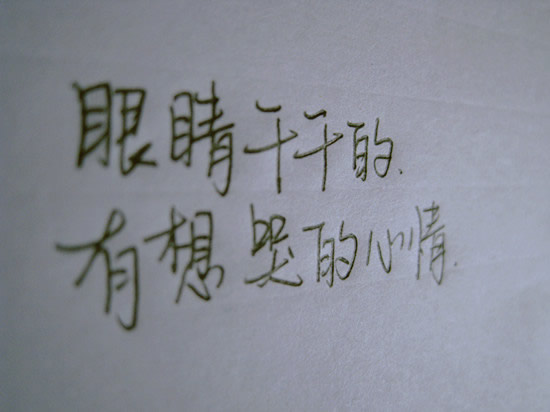 眼睛干干的.
有想哭的心情.